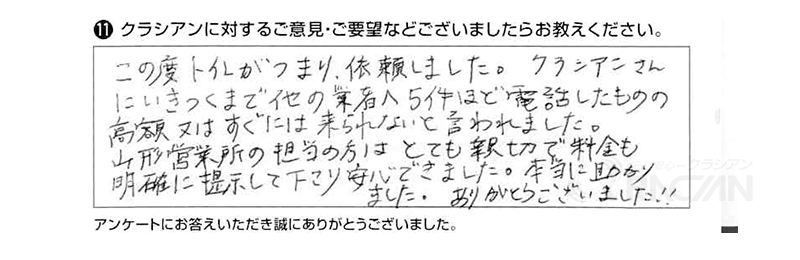 ⓫ クラシアンに対するご意見・ご要望などございましたらお教えください。
この度トイレがつまり、依頼しました。 クラシアンさん
にいきつくまで他の業者へ5件ほど電話したものの
高額又はすぐには来られないと言われました。
山形営業所の担当の方はとても親切で料金も
明確に提示して下さり安心できました。本当に助かり
ました。 ありがとうございました!!
アンケートにお答えいただき誠にありがとうございました。